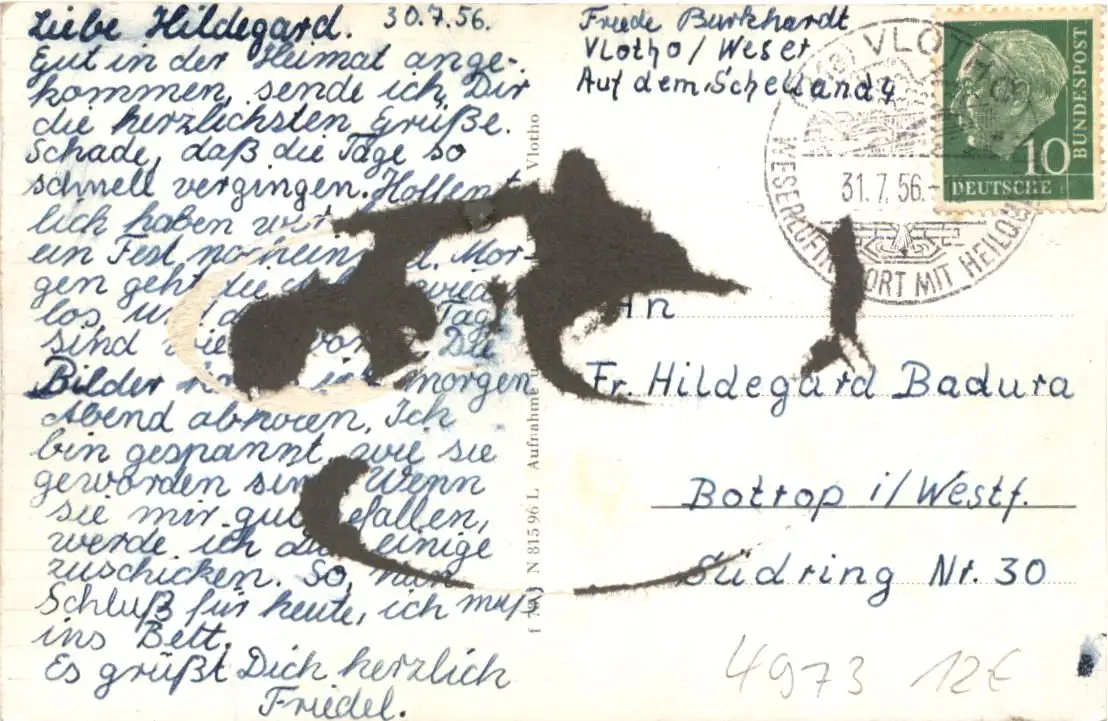 Liebe Hildegard. 30.7.56.
Gut in der Heimat ange-
kommen, sende ich Dir
die herzlichsten Grüße.
Schade, daß die Tage so
schnell vergingen. Hoffent
lich haben wir
ein Fest
Mor-
gen geht die
los,
Tage
sind Die
Bilder morgen
Abend abholen, Ich
bin gespannt wie sie
geworden sind Wenn
sie mir gut gefallen,
werde ich Dir einige
zuschicken. So, nun
Schluß für heute, ich muß
ins Bett.
Es grüßt Dich herzlich
Friedel.
Friede Burkhardt
Vlotho / Weser
Auf dem Schelland 4
VLOTHO
31.7.56.-
ORT MIT
10
DEUTSCHE
BUNDESPOST
Vlotho
N 81596 L Aufnahme
An
Fr. Hildegard Badura
Botrop i/Westf.
Südring Nr. 30
4973 12€